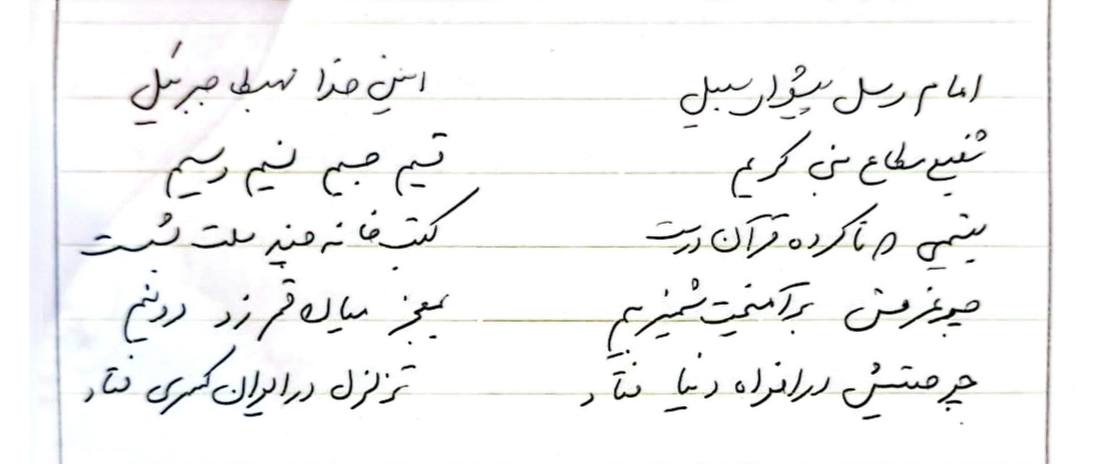 امام رسل پیشوای سبیل امین خدا مهبط جبرئیل
شفیع مطاع نبی کریم قسیم جسیم نسیم وسیم
یتیمی که ناکرده قرآن درست کتب خانه چند ملت بشست
چو عزمش برآهیخت شمشیر بیم بمعجز میان قمر زد دونیم
چو صیتش در افواه دنیا فتاد تزلزل در ایوان کسری فتاد